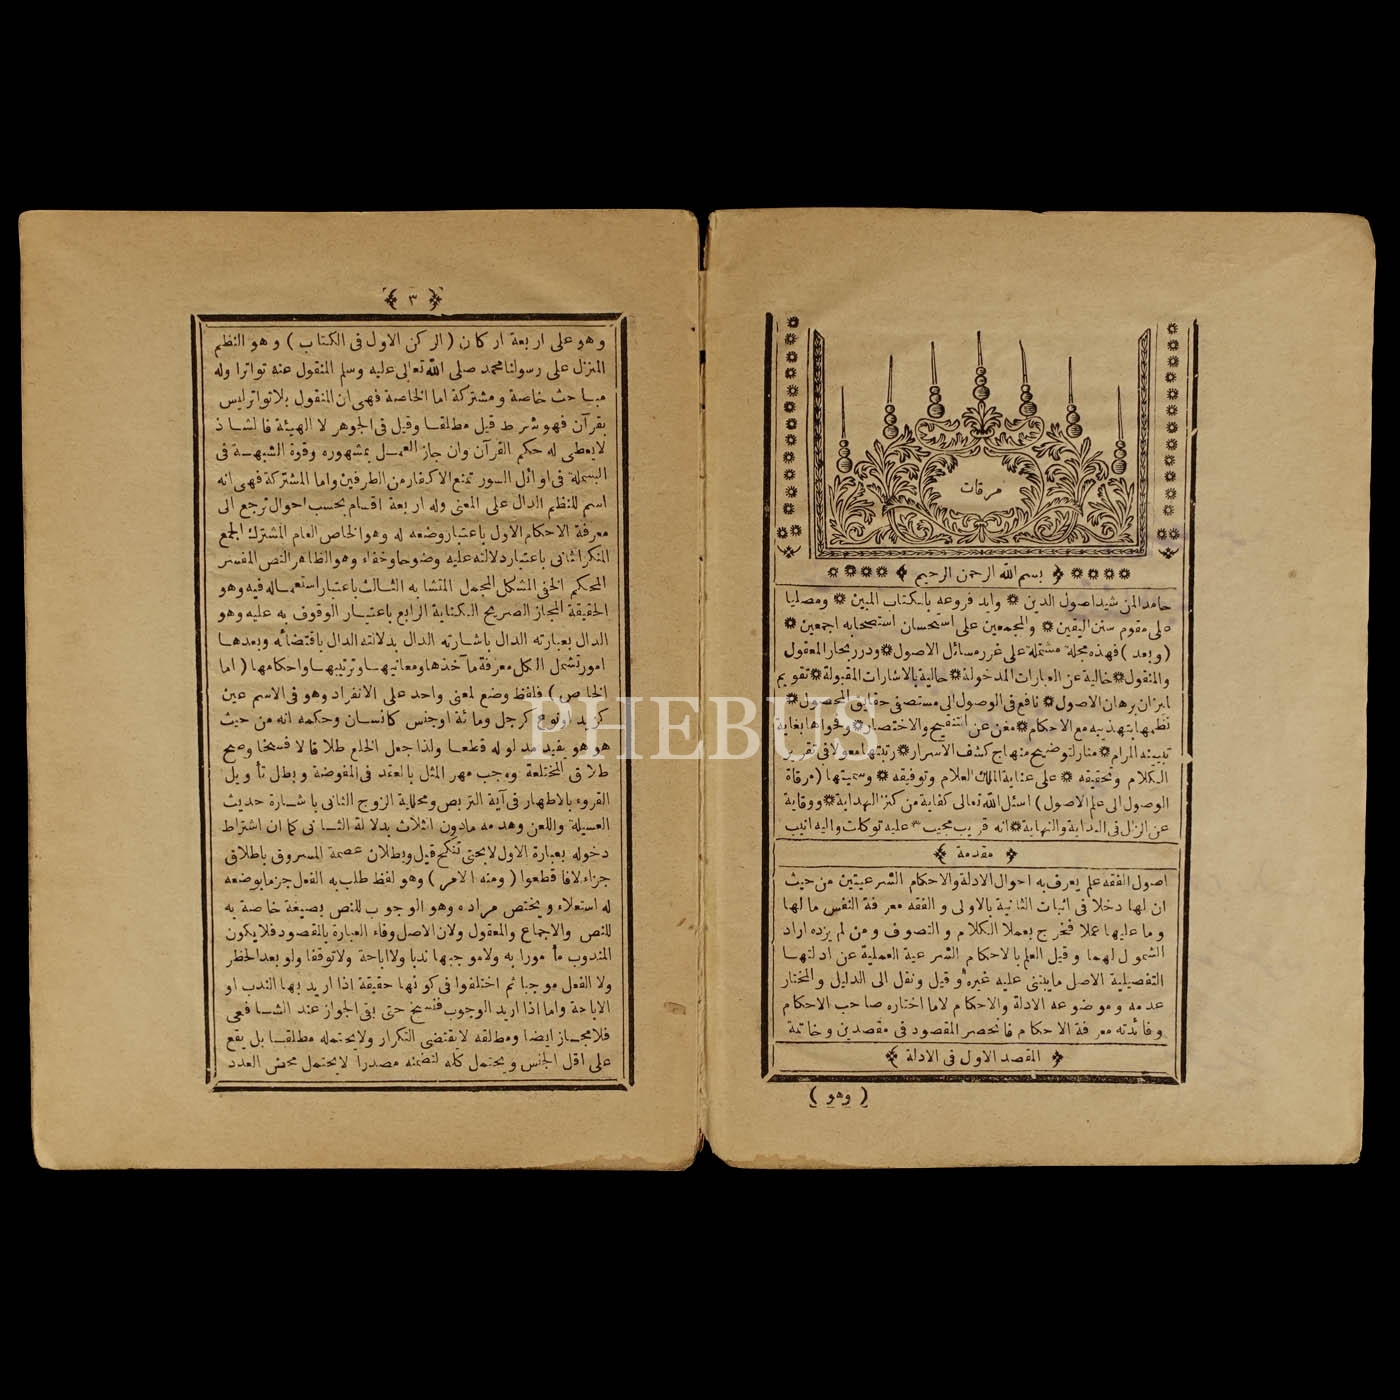 مرقات
بسم الله الرحمن الرحيم
حامدا لمن شيد اصول الدين * وايد فروعه بالكتاب المبين * ومصليا
على مقوم سنن اليقين * والمجمعين على استحسان استصحابه اجمعين *
(وبعد) فهذه مجلة مشتملة على غرر مسائل الاصول * ودرر بحار المعقول
والمنقول * خالية عن العبارات المدخولة * حالية بالاشارات المقبولة * تقويم
لميزان برهان الاصول * نافع فى الوصول الى مستصفى حقايق المحصول *
نظمها بتهذيبه مع الاحكام * مغن عن التنقيح والاختصار * وفحواها بغاية
تبيينه المرام * منار لتوضيح منهاج كشف الاسرار * رتبتها معولا فى تقرير
الكلام وتحقيقه * على عناية الملك العلام وتوفيقه * وسميتها (مرقاة
الوصول الى علم الاصول) اسئل الله تعالى كفاية من كنز الهداية * ووقاية
عن الزلل فى البداية والنهاية * انه قريب مجيب * عليه توكلت واليه انيب
مقدمة
اصول الفقه علم يعرف به احوال الادلة والاحكام الشرعيتين من حيث
ان لها دخلا فى اثبات الثانية بالاولى و الفقه معرفة النفس ما لها
وما عليها عملا فخرج بعملا الكلام و التصوف و من لم يزده اراد
الشمول لهما و قيل العلم بالاحكام الشرعية العملية عن ادلتها
التفصيلية الاصل ما يبتنى عليه غيره و قيل ونقل الى الدليل والمختار
عدمه و موضوعه الادلة والاحكام لاما اختاره صاحب الاحكام
وفائدته معرفة الاحكام فانحصر المقصود فى مقصدين وخاتمة
المقصد الاول فى الادلة
(وهو)
٣
وهو على اربعة اركان (الركن الاول فى الكتاب) وهو النظم
المنزل على رسولنا محمد صلى الله تعالى عليه وسلم المنقول عنه تواترا وله
مباحث خاصة ومشتركة اما الخاصة فهى ان المنقول بلا تواتر ليس
بقرآن فهو شرط قيل مطلقا وقيل فى الجوهر لا الهيئة فالشاذ
لا يعطى له حكم القرآن وان جاز العمل بمشهوره وقوة الشبهة فى
البسملة فى اوائل السور تمنع الاكفار من الطرفين واما المشتركة فهى انه
اسم للنظم الدال على المعنى وله اربعة اقسام بحسب احوال ترجع الى
معرفة الاحكام الاول باعتبار وضعه له وهو الخاص العام المشترك الجمع
المنكر الثانى باعتبار دلالته عليه وضوحا وخفاء وهو الظاهر النص المفسر
المحكم الخفى المشكل المجمل المتشابه الثالث باعتبار استعماله فيه وهو
الحقيقة المجاز الصريح الكناية الرابع باعتبار الوقوف به عليه وهو
الدال بعبارته الدال باشارته الدال بدلالته الدال باقتضائه وبعدها
امور تشمل الكل معرفة مآخذها ومعانيها وترتيبها واحكامها (اما
الخاص) فلفظ وضع لمعنى واحد على الانفراد وهو فى الاسم عين
كزيد اونوع كرجل ومائة اوجنس كانسان وحكمه انه من حيث
هو هو يفيد مدلوله قطعا ولذا جعل الخلع طلاقا لا فسخا وصح
طلاق المختلعة ووجب مهر المثل بالعقد فى المفوضة وبطل تأويل
القروء بالاطهار فى آية التربص ومحللية الزوج الثانى باشارة حديث
العسيلة واللعن وهدمه مادون الثلاث بدلالة الثانى كما ان اشتراط
دخوله بعبارة الاول لابحتى تنكح قيل وبطلان عصمة المسروق باطلاق
جزاء لا فاقطعوا (ومنه الامر) وهو لفظ طلب به الفعل جزما بوضعه
له استعلاء ويختص مراده وهو الوجوب للنص بصيغة خاصة به
للنص والاجماع والمعقول ولان الاصل وفاء العبارة بالمقصود فلا يكون
المندوب مأمورا به ولا موجبها ندبا ولا اباحة ولا توقفا ولو بعد الحظر
ولا الفعل موجبا ثم اختلفوا فى كونها حقيقة اذا اريد بها الندب او
الاباحة واما اذا اريد الوجوب فنسخ حتى بقى الجواز عند الشافعى
فلا مجاز ايضا ومطلقه لا يقتضى التكرار ولا يحتمله مطلقا بل يقع
على اقل الجنس ويحتمل كله لتضمنه مصدرا لا يحتمل محض العدد
PHEBUS